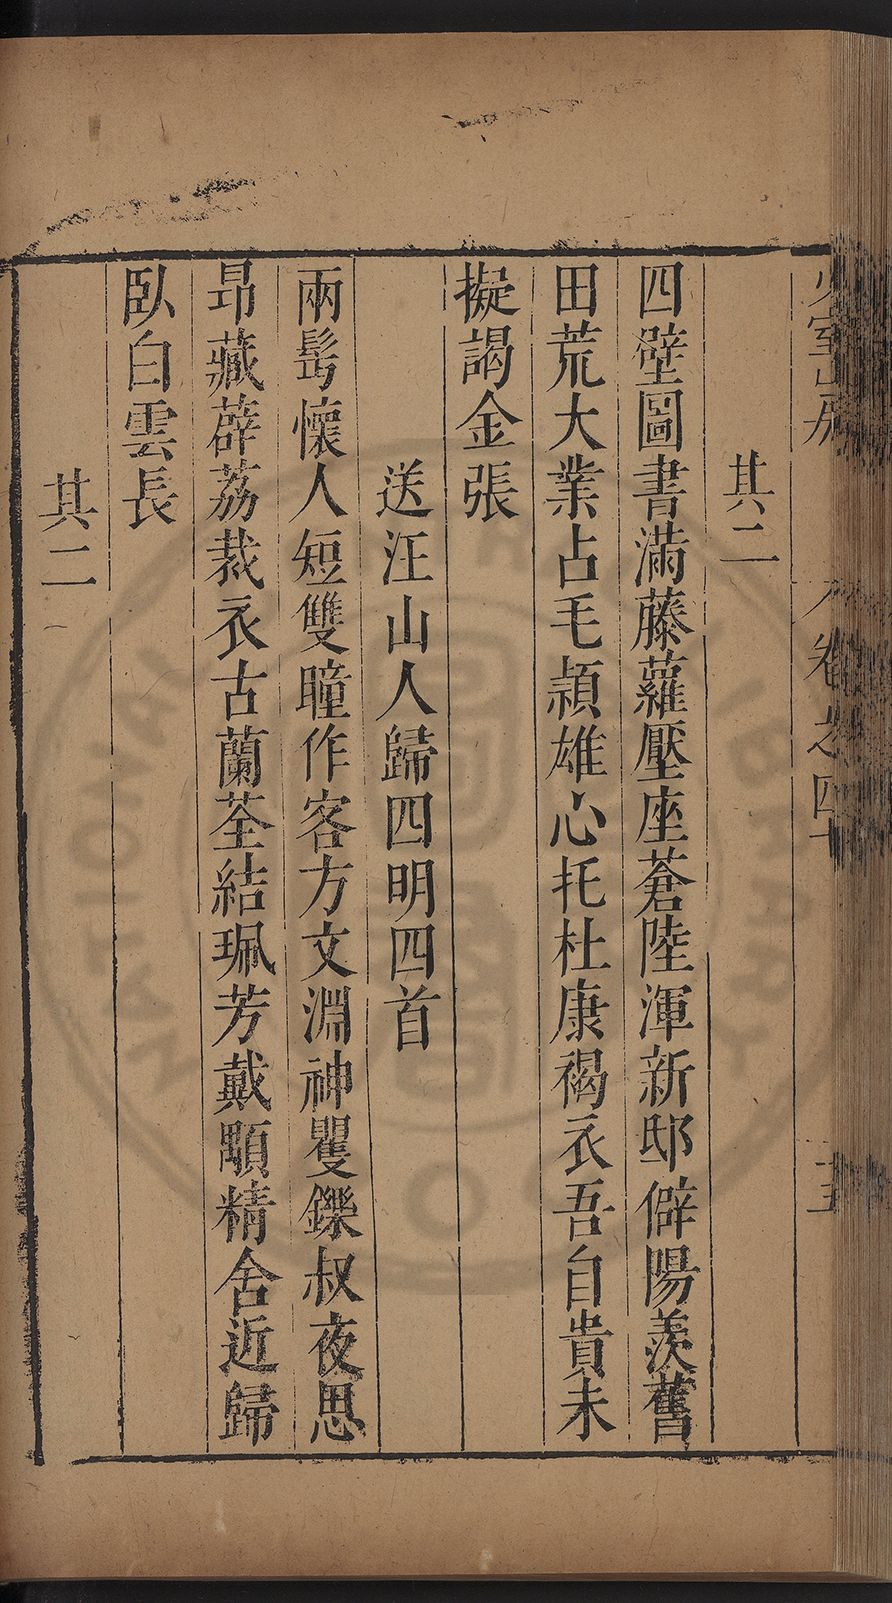 少室山房 卷之四十 十五
其二
四壁圖書滿藤蘿壓座蒼陸渾新邸僻陽羨舊
田荒大業占毛潁雄心托杜康褐衣吾自貴未
擬謁金張
送汪山人歸四明四首
兩髩懷人短雙瞳作客方文淵神矍鑠叔夜思
昂藏薜荔裁衣古蘭荃結珮芳戴顒精舍近歸
臥白雲長
其二